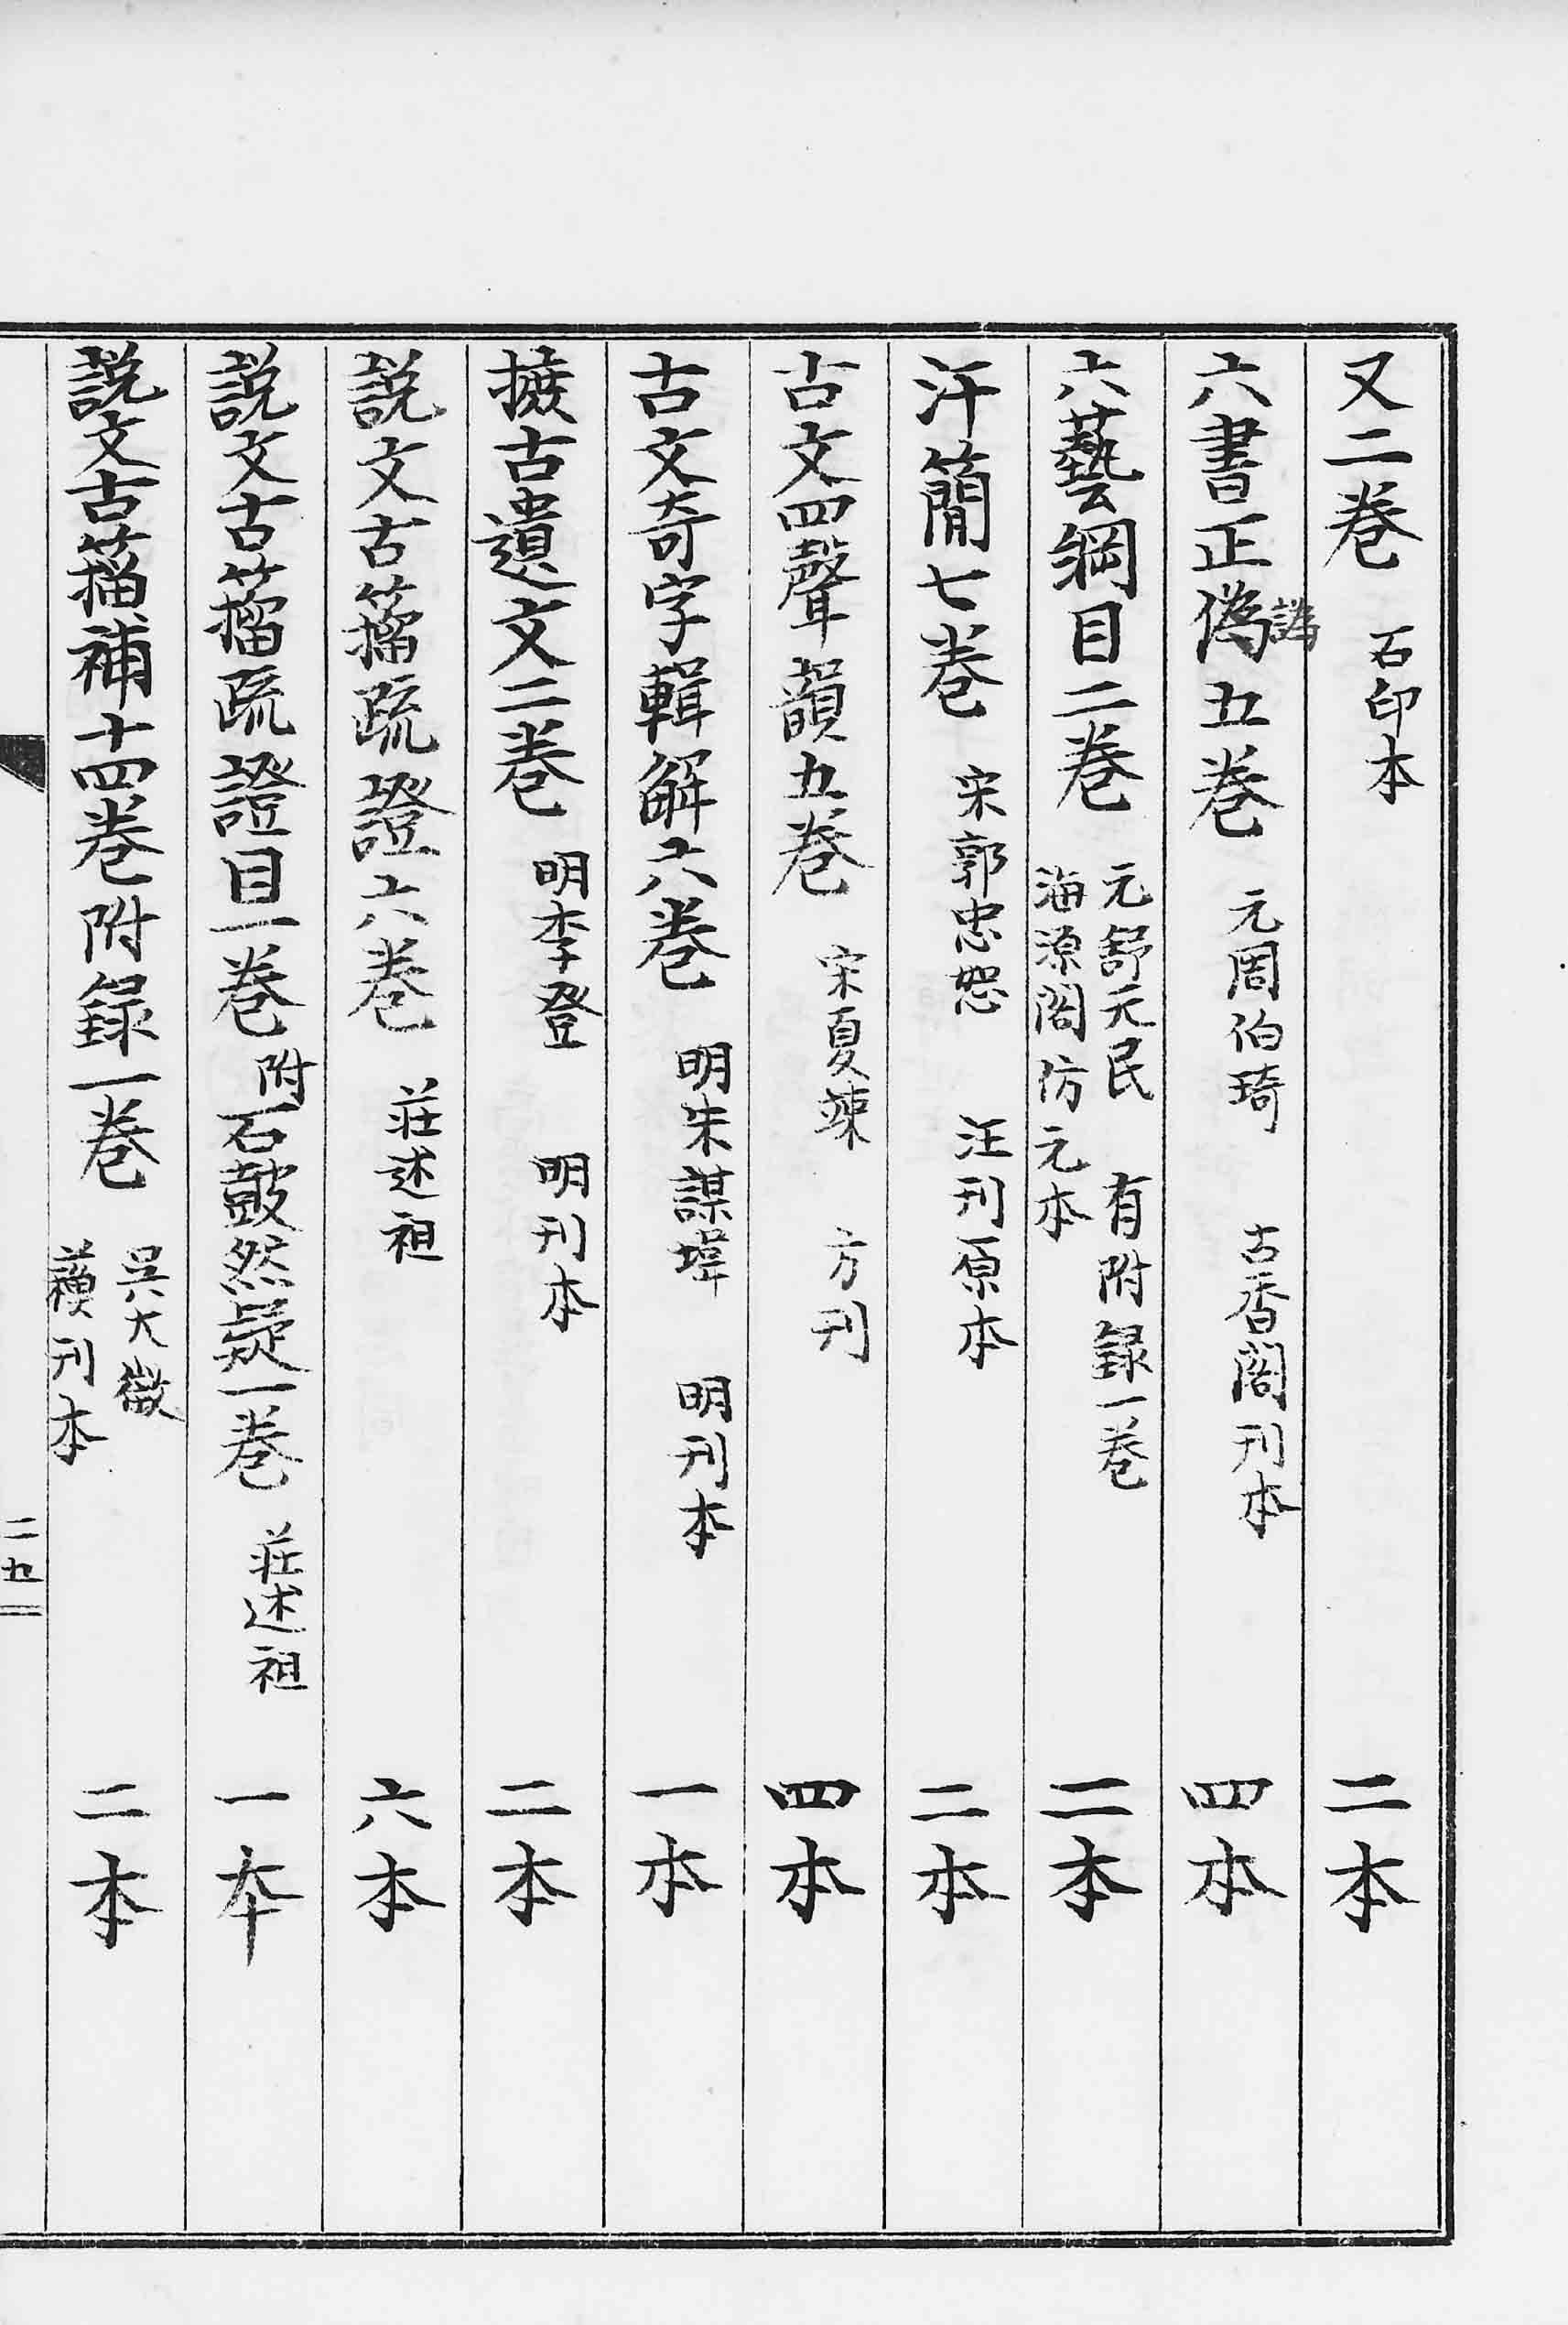 又二卷 石印本 二本
六書正偽譌五卷 元周伯琦 古香閣刊本 四本
六藝綱目二卷 元舒天民 有附録一卷 海源閣仿元本 二本
汗簡七卷 宋郭忠恕 汪刊原本 二本
古文四聲韻五卷 宋夏竦 方刊 四本
古文奇字輯解六卷 明朱謀㙔 明刊本 一本
摭古遺文二卷 明李登 明刊本 二本
説文古籀疏證六卷 莊述祖 六本
説文古籀疏證目一卷附石鼓然疑一卷 莊述祖 一本
説文古籀補十四卷附録一卷 吳大澂 蘇刊本 二本
二五